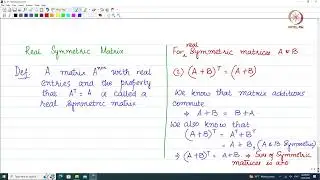 Real Symmetric Matrix
Def: A matrix Aⁿˣⁿ with real
entries and the property
that Aᵀ = A is called a
real symmetric matrix
For real symmetric matrices A & B
(A+B)ᵀ = (A+B)
We know that matrix additions
commute
⇒ A + B = B + A
We also know that
(A+B)ᵀ = Aᵀ + Bᵀ
= A + B, (A & B Symmetric)
⇒ (A+B)ᵀ = A+B ⇒ Sum of Symmetric
matrices is are